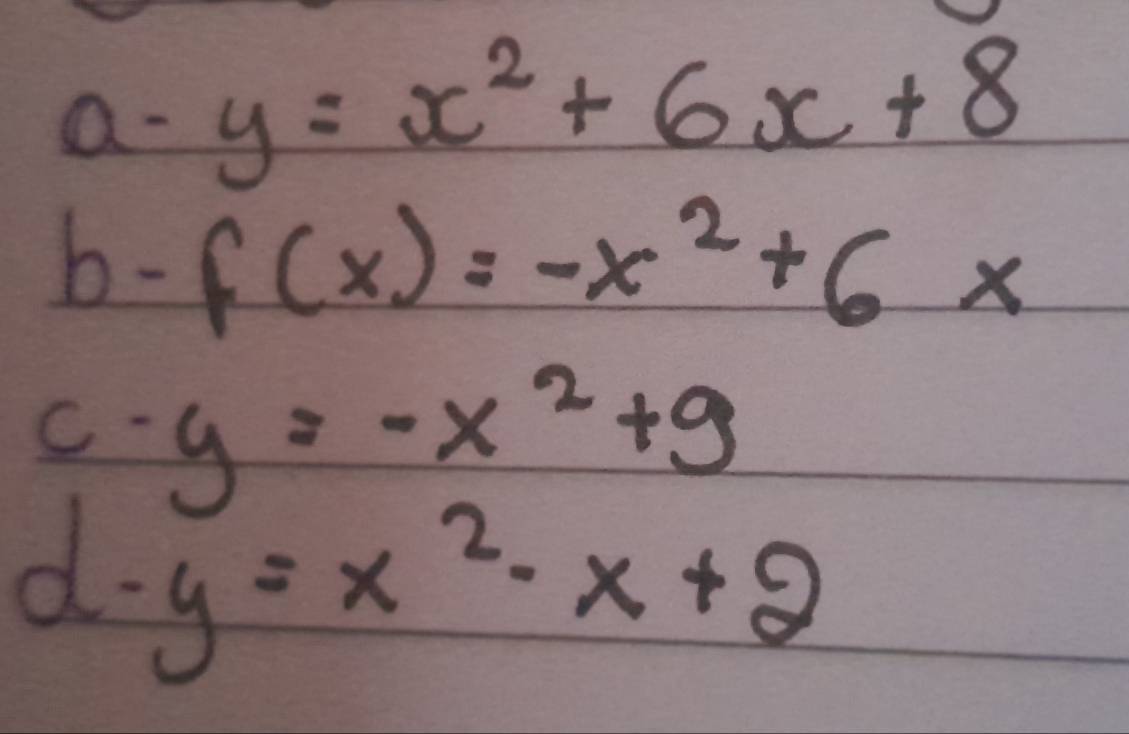 a- y = x² + 6x + 8
b- f(x) = -x² + 6 x
c- y = -x² + 9
d- y = x² - x + 2